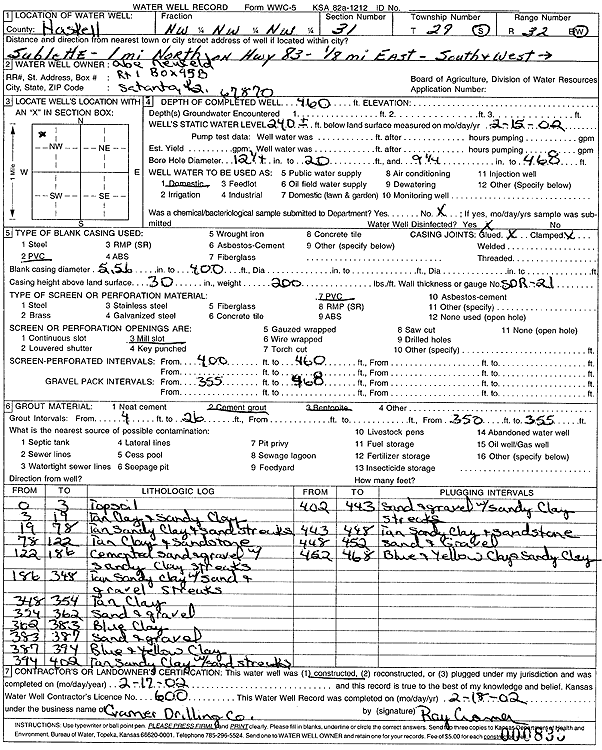 WATER WELL RECORD Form WWC-5 KSA 82a-1212 ID No.
1 LOCATION OF WATER WELL: Fraction Section Number Township Number Range Number
County: Haskell NW ¼ NW ¼ NW ¼ 31 T 29 S R 32 E W
Distance and direction from nearest town or city street address of well if located within city?
Sublette - 1 mi North on Hwy 83 - 1/8 mi East - South & West →
2 WATER WELL OWNER: Abe Neufeld
RR#, St. Address, Box # : Rt 1 Box 95B Board of Agriculture, Division of Water Resources
City, State, ZIP Code : Satanta, Ks. 67870 Application Number:
3 LOCATE WELL'S LOCATION WITH AN "X" IN SECTION BOX:
N
NW NE
W E
SW SE
S
1 Mile
4 DEPTH OF COMPLETED WELL 460 ft. ELEVATION:
Depth(s) Groundwater Encountered 1 ft. 2 ft. 3 ft.
WELL'S STATIC WATER LEVEL 240 ± ft. below land surface measured on mo/day/yr 2-15-02
Pump test data: Well water was ft. after hours pumping gpm
Est. Yield gpm; Well water was ft. after hours pumping gpm
Bore Hole Diameter 12 1/4 in. to 20 ft., and 9 1/4 in. to 468 ft.
WELL WATER TO BE USED AS: 5 Public water supply 8 Air conditioning 11 Injection well
1 Domestic 3 Feedlot 6 Oil field water supply 9 Dewatering 12 Other (Specify below)
2 Irrigation 4 Industrial 7 Domestic (lawn & garden) 10 Monitoring well
Was a chemical/bacteriological sample submitted to Department? Yes No X ; If yes, mo/day/yrs sample was submitted Water Well Disinfected? Yes X No
5 TYPE OF BLANK CASING USED: 5 Wrought iron 8 Concrete tile CASING JOINTS: Glued X Clamped X
1 Steel 3 RMP (SR) 6 Asbestos-Cement 9 Other (specify below) Welded
2 PVC 4 ABS 7 Fiberglass Threaded
Blank casing diameter 5.56 in. to 400 ft., Dia in. to ft., Dia in. to ft.
Casing height above land surface 30 in., weight 200 lbs./ft. Wall thickness or gauge No. SDR-21
TYPE OF SCREEN OR PERFORATION MATERIAL: 7 PVC 10 Asbestos-cement
1 Steel 3 Stainless steel 5 Fiberglass 8 RMP (SR) 11 Other (specify)
2 Brass 4 Galvanized steel 6 Concrete tile 9 ABS 12 None used (open hole)
SCREEN OR PERFORATION OPENINGS ARE: 5 Gauzed wrapped 8 Saw cut 11 None (open hole)
1 Continuous slot 3 Mill slot 6 Wire wrapped 9 Drilled holes
2 Louvered shutter 4 Key punched 7 Torch cut 10 Other (specify) ft.
SCREEN-PERFORATED INTERVALS: From 400 ft. to 460 ft., From ft. to ft.
From ft. to ft., From ft. to ft.
GRAVEL PACK INTERVALS: From 355 ft. to 468 ft., From ft. to ft.
From ft. to ft., From ft. to ft.
6 GROUT MATERIAL: 1 Neat cement 2 Cement grout 3 Bentonite 4 Other
Grout Intervals: From 4 ft. to 26 ft., From ft. to ft., From 350 ft. to 355 ft.
What is the nearest source of possible contamination: 10 Livestock pens 14 Abandoned water well
1 Septic tank 4 Lateral lines 7 Pit privy 11 Fuel storage 15 Oil well/Gas well
2 Sewer lines 5 Cess pool 8 Sewage lagoon 12 Fertilizer storage 16 Other (specify below)
3 Watertight sewer lines 6 Seepage pit 9 Feedyard 13 Insecticide storage
Direction from well? How many feet?
FROM TO LITHOLOGIC LOG FROM TO PLUGGING INTERVALS
0 3 Topsoil 402 443 Sand & gravel w/ Sandy Clay streaks
3 19 Tan Clay & Sandy Clay
19 78 Tan Sandy Clay & Sand streaks 443 448 Tan Sandy Clay & Sandstone
78 122 Tan Clay & Sandstone 448 452 Sand & Gravel
122 186 Cemented sand & gravel w/ Sandy Clay streaks 452 468 Blue & Yellow Clay & Sandy Clay
186 348 Tan Sandy Clay w/ Sand & gravel streaks
348 354 Tan Clay
354 362 Sand & gravel
362 383 Blue Clay
383 387 Sand & gravel
387 394 Blue & Yellow Clay
394 402 Tan Sandy Clay w/ Sand streaks
7 CONTRACTOR'S OR LANDOWNER'S CERTIFICATION: This water well was (1) constructed, (2) reconstructed, or (3) plugged under my jurisdiction and was
completed on (mo/day/year) 2-17-02 and this record is true to the best of my knowledge and belief, Kansas
Water Well Contractor's Licence No. 600 This Water Well Record was completed on (mo/day/yr) 2-18-02
under the business name of Cramer Drilling Co. by (signature) Ray Cramer
INSTRUCTIONS: Use typewriter or ball point pen. PLEASE PRESS FIRMLY and PRINT clearly. Please fill in blanks, underline or circle the correct answers. Send top three copies to Kansas Department of Health and
Environment, Bureau of Water, Topeka, Kansas 66620-0001. Telephone 785-296-5524. Send one to WATER WELL OWNER and retain one for your records. Fee of $5.00 for each constructed well.